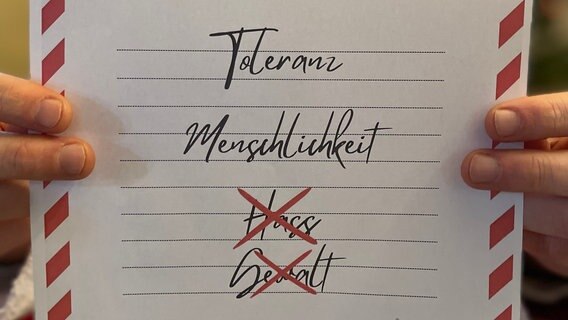 Toleranz
Menschlichkeit
Hass
Gewalt